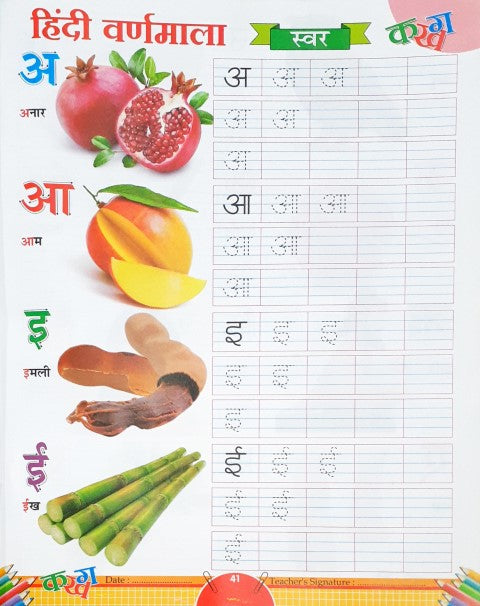 हिंदी वर्णमाला
स्वर
कखग
अ
अनार
अ अ अ
अ अ
अ
आ
आम
आ आ आ
आ आ
आ
इ
इमली
इ इ इ
इ इ
इ
ई
ईख
ई ई ई
ई ई
ई
कखग
Date : ....................
41
Teacher's Signature : ....................
कखग